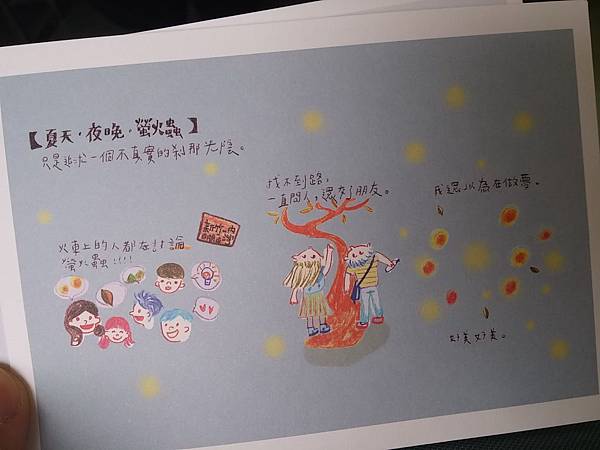 【夏天·夜晚·螢火蟲】
只是追求一個不真實的剎那光陰。
火車上的人都在討論
螢火蟲!!!!
找不到路,
一直問人,還交了朋友。
我還以為在做夢。
好美好美。